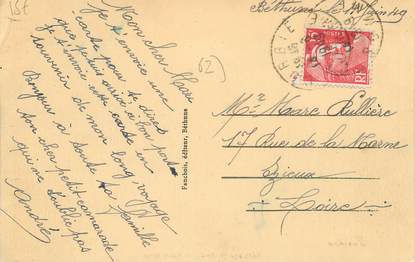 Béthune le
Mon cher Marc
Je t'envoie une
carte pour te dire
que je suis arrivé à bon port
Je t'envoie cette carte en
souvenir de mon long voyage
Bonjour à toute ta famille
ton cher petit camarade
qui ne t'oublie pas
André
62
Fauchois, éditeur, Béthune
RF
Mr Marc Rullière
17 Rue de la Marne
Izieux
Loire